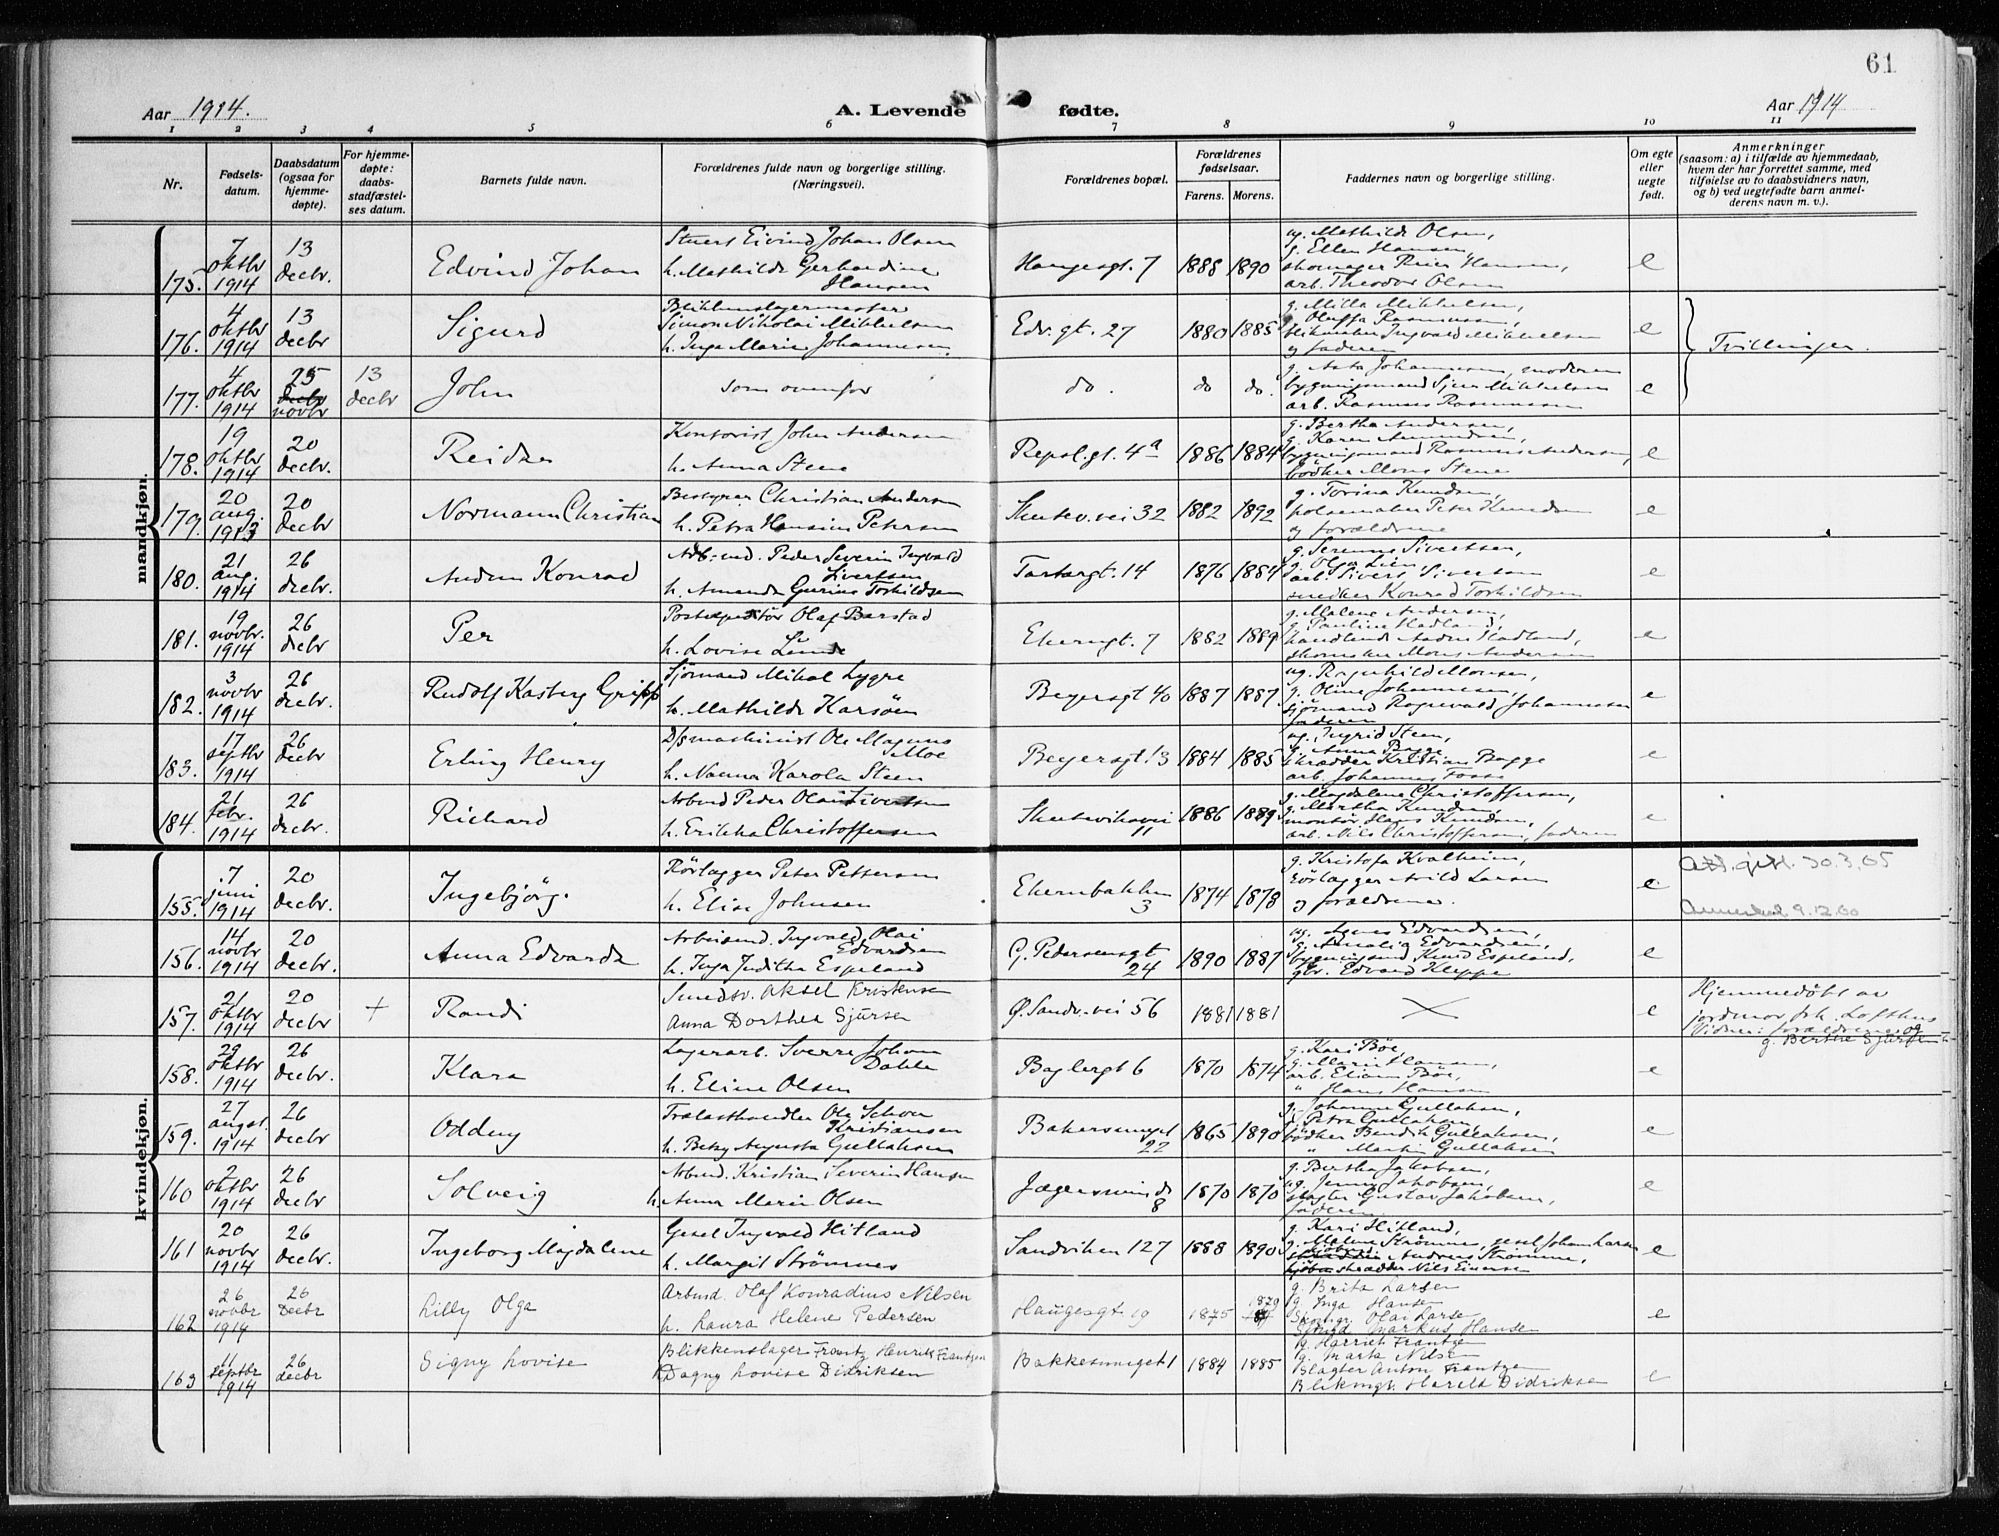 61
Aar 1914.
A. Levende fødte.
Aar 1914
1 2 3 4 5 6 7 8 9 10 11
Nr.
Fødsels-
datum.
Daabsdatum
(ogsaa for
hjemme-
døpte).
For hjemme-
døpte:
daabs-
stadfæstel-
ses datum.
Barnets fulde navn.
Forældrenes fulde navn og borgerlige stilling.
(Næringsvei).
Forældrenes bopæl.
Forældrenes
fødselsaar.
Farens. Morens.
Faddernes navn og borgerlige stilling.
Om egte
eller
uegte
født.
Anmerkninger
(saasom: a) i tilfælde av hjemmedaab,
hvem der har forrettet samme, med
tilføielse av to daabsvidners navn,
og b) ved uegtefødte barn anmel-
derens navn m. v.).
mandkjøn.
175. 7 oktbr 1914 13 decbr. Edvind Johan
Stuert Eivind Johan Olsen
h. Mathilde Gerhardine
Hansen
Haugesgt. 7 1888 1890
ug. Mathilde Olsen,
g. Ellen Hansen,
skomager Hansen,
arb. Theodor Olsen
e
176. 4 oktbr 1914 13 decbr Sigurd
Blikkenslagermester
Simon Nikolai Mikkelsen
h. Inga Marie Johannesen.
Edv. gt. 27 1880 1885
g. Milla Mikkelsen,
g. Oluffa Rasmussen,
Ingvald Mikkelsen
og faderen
e Tvillinger.
177. 4 oktbr 1914 25 decbr novbr 13 decbr John
som ovenfor
do. do do.
g. Asta Johannesen, moderen
bygningsmand Mikkelsen
arb. Rasmus Rasmussen
e
178. 19 oktbr 1914 20 decbr. Reidar
Kontorist John Andersen
h. Anna Stene
Repsl.gt. 4a 1886 1884
g. Bertha Andersen,
g. Karen Amundsen,
bygningsmand Rasmus Andersen,
bödker Mons Stene
e
179. 20 aug. 1913 20 decbr Normann Christian
Bestyrer Christian Andersen
h. Petra Hansine Petersen
Skutev. vei 32 1882 1892
g. Torina Knudsen,
pölsemaker Peter Knudsen
og forældrene
e
180. 21 aug. 1914 26 decbr. Konrad
Arb-md. Peder Severin Ingvald
Sivertsen
h. Amanda Gurine Torkildsen
Tartargt. 14 1876 1884
g. Serenne Sivertsen,
g. Olga Lien,
arb. Sivert Sivertsen
snedker Konrad Torkildsen
e
181. 19 novbr. 1914 26 decbr Per
Postexpeditör Olaf Barstad
h. Lovise Lunde
Ekerngt. 7 1882 1889
g. Malene Andersen,
g. Pauline Hadland,
handlende Hadland,
Mons Andersen
e
182. 3 novbr 1914 26 decbr. Rudolf Kasberg Gripp
Sjömand Mikal Lygre
h. Mathilde Karsöen
Beyersgt 40 1887 1887
ug. Ragnhild Monsen,
g. Oline Johannesen,
sjömand Ragnvald Johannesen
faderen
e
183. 17 septbr 1914 26 decbr Erling Henry
D/s maskinist Ole Magnus
Moe
h. Nanna Karola Steen
Beyersgt 13 1884 1885
ug. Ingrid Steen,
g. Anna Bagge
skrædder Kristian Bagge
arb. Johannes Foss
e
184. 21 febr. 1914 26 decbr. Richard
Arbmd Peder Olai Sivertsen
h. Erikka Christoffersen
Skutevikvei 11 1886 1889
g. Magdalene Christoffersen,
g. Martha Knudsen,
montör Hans Knudsen,
arb. Nils Christoffersen, faderen
e
kvindekjøn.
155. 7 juni 1914 20 decbr. Ingebjörg.
Rörlægger Peter Pettersen
h. Elise Johnsen
Ekernbakken 3 1874 1878
g. Kristofa Kvalheim,
rörlægger Arild Larsen
og forældrene.
e
Att. gitt. 30.3.65
9.12.60
156. 14 novbr 1914 20 decbr. Anna Edvarda
Arbeidsmd. Ingvald Olai
Edvardsen
h. Inga Juditha Espeland
G. Pedersensgt 24 1890 1887
ug. Agnes Edvardsen,
g. Amalie Edvardsen,
bygningsmd Knud Espeland,
gbr. Edvard Kleppe
e
157. 21 oktbr 1914 20 decbr + Randi
Smedsv. Aksel Kristensen
Anna Dorthea Sjursen
Ø. Sandv. vei 56 1881 1881
e
Hjemmedöbt av
jordmor frk. Lofthus
Vidner: forældrene og
g. Berthe Sjursen
158. 29 oktbr 1914 26 decbr. Klara
Lagerarb. Sverre Johan
Dahle
h. Eline Olsen
Baglergt 6 1870 1874
g. Kari Böe,
g. Marie Hansen,
arb. Elias Böe,
" Hans Hansen
e
159. 27 augst. 1914 26 decbr Oddny
Trælasthandler Ole Schou
Kristiansen
h. Betzy Augusta Gullaksen
Bakersmuget 22 1865 1890
g. Johanne Gullaksen,
g. Petra Gullaksen,
bödker Bendik Gullaksen,
" Martin Gullaksen
e
160 2 oktbr 1914 26 decbr. Solveig
Arbmd. Kristian Severin Hansen
h. Anna Marie Olsen
Jægersmindе 8 1870 1870
g. Berthe Jakobsen,
ug. Jenny Jakobsen,
slagter Gustav Jakobsen,
faderen
e
161 20 novbr 1914 26 decbr. Ingeborg Magdalene
Gesel Ingvald Hitland
h. Margit Strömnes
Sandviken 127 1888 1890
g. Kari Hitland,
g. Malene Strömme, gesel Johan Larsen
Andreas Strömme,
skrædder Nils Einersen
e
162 26 novbr 1914 26 Decbr Lilly Olga
Arbmd. Olaf Konradius Nilsen
h. Laura Helene Pedersen
Haugesgt 19 1875 1879
g. Brita Larsen
g. Inga Hansen
Olai Larsen
Sjömd Markus Hansen
e
163 11 septbr 1914 26 decbr Signy Lovise
Blikkenslager Frantz Henrik Frantzen
h. Dagny Lovise Didriksen
Bakkesmuget 1 1884 1885
ug. Harriet Frantzen
g. Marta Nilsen
Slagter Anton Frantzen
Harald Didriksen
e